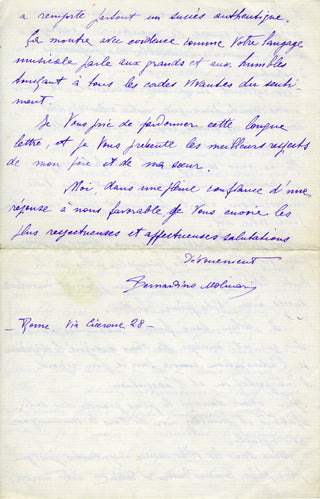 a remporté partout un succès authentique.
Ça montre avec evidence comme Votre langage
musicale parle aux grands et aux humbles
touçant à tous les cordes vivantes du senti-
ment.
Je Vous prie de pardonner cette longue
lettre, et je Vous présente les meilleurs respects
de mon père et de ma sœur.
Moi, dans une pleine confiance d'une
réponse à nous favorable je Vous envoie les
plus respectueuses et affectueuses salutations
Dévouement
Bernardino Molinari
- Rome Via Cicerone 28 -